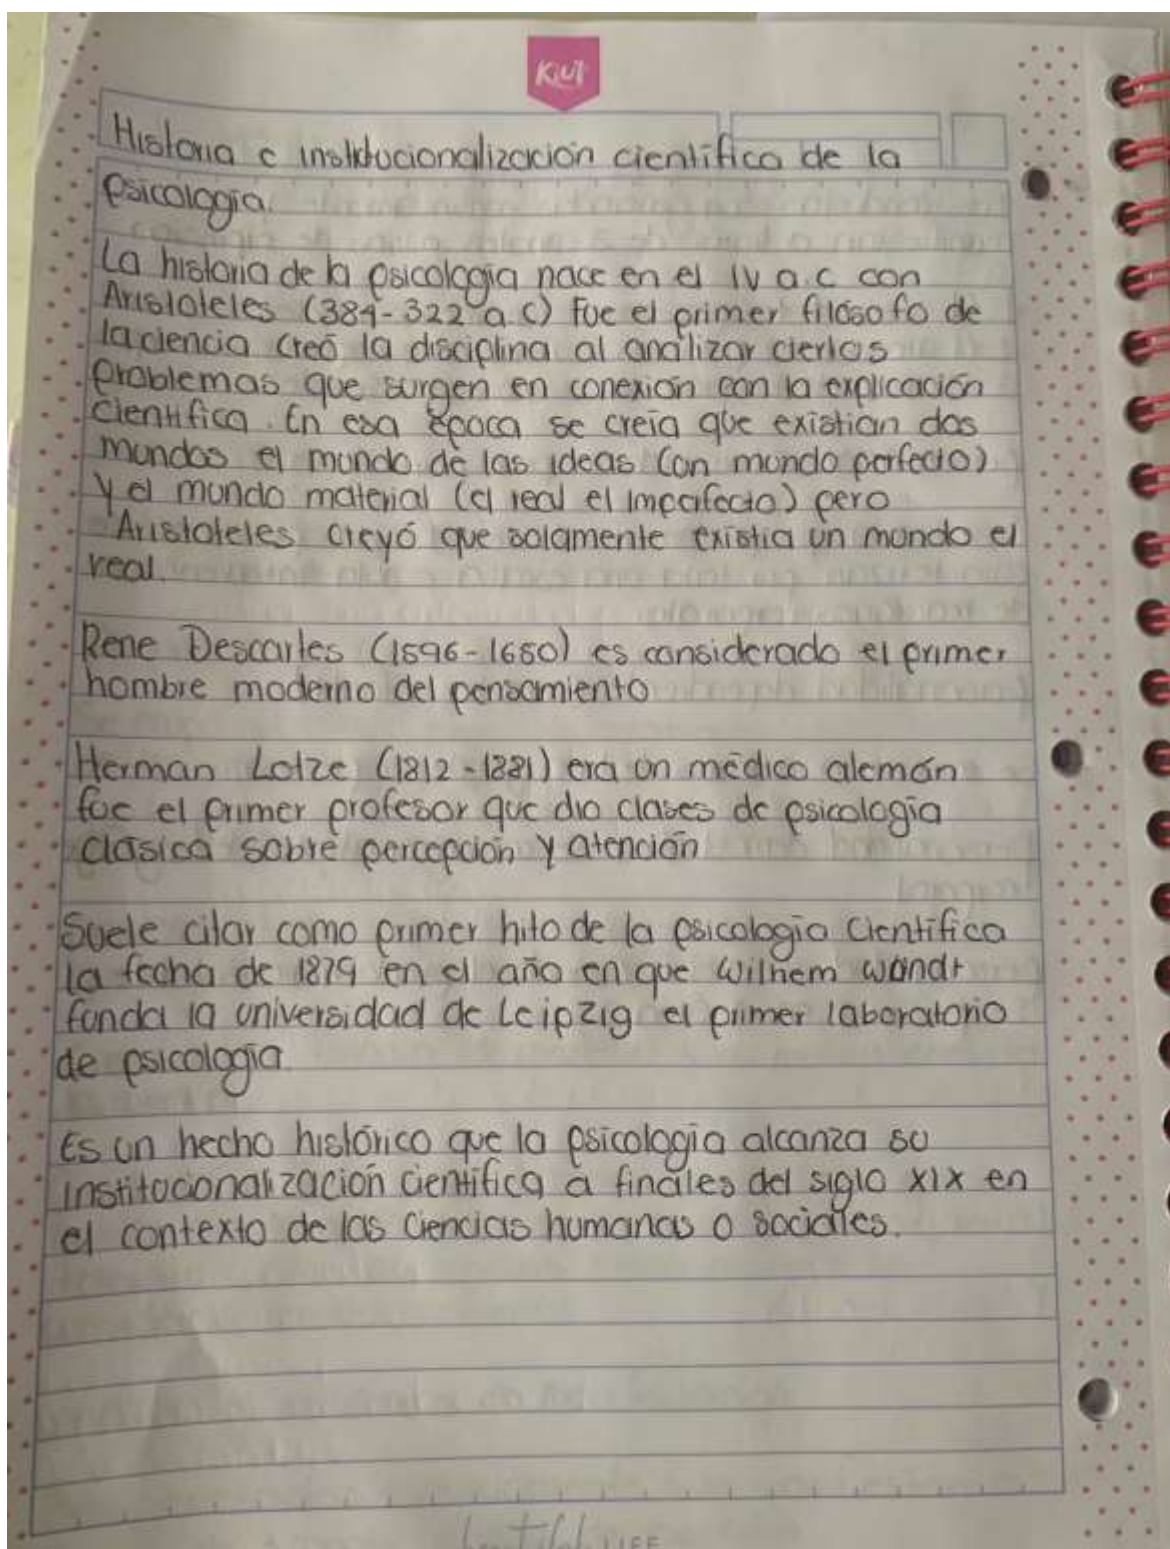 Kiut
Historia e institucionalización científica de la
psicología.
La historia de la psicología nace en el IV a.c con
Aristoteles (384-322 a.c) Fue el primer filósofo de
la ciencia creó la disciplina al analizar ciertos
problemas que surgen en conexión con la explicación
científica. En esa época se creía que existian dos
mundos el mundo de las ideas (un mundo perfecto)
y el mundo material (el real el imperfecto) pero
Aristoteles creyó que solamente existia un mundo el
real.
Rene Descartes (1596-1650) es considerado el primer
hombre moderno del pensamiento
Herman Lotze (1812-1881) era un médico alemán
fue el primer profesor que dio clases de psicología
clásica sobre percepción y atención
Suele citar como primer hito de la psicología Científica
la fecha de 1879 en el año en que Wilhem wundt
funda la universidad de Leipzig el primer laboratorio
de psicología
Es un hecho histórico que la psicología alcanza su
institucionalización científica a finales del siglo XIX en
el contexto de las Ciencias humanas o sociales.
LIFE